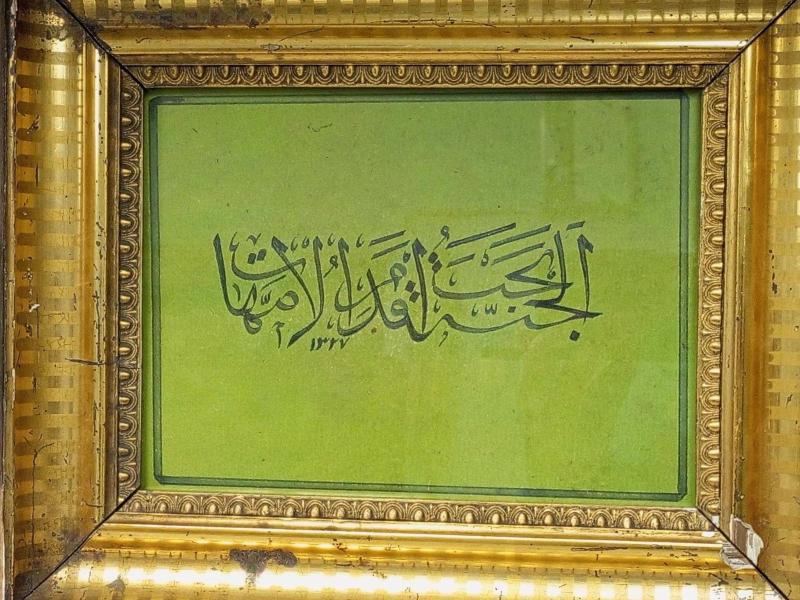 الجنّة تحت اقدام الامّهات
١٣٢٧